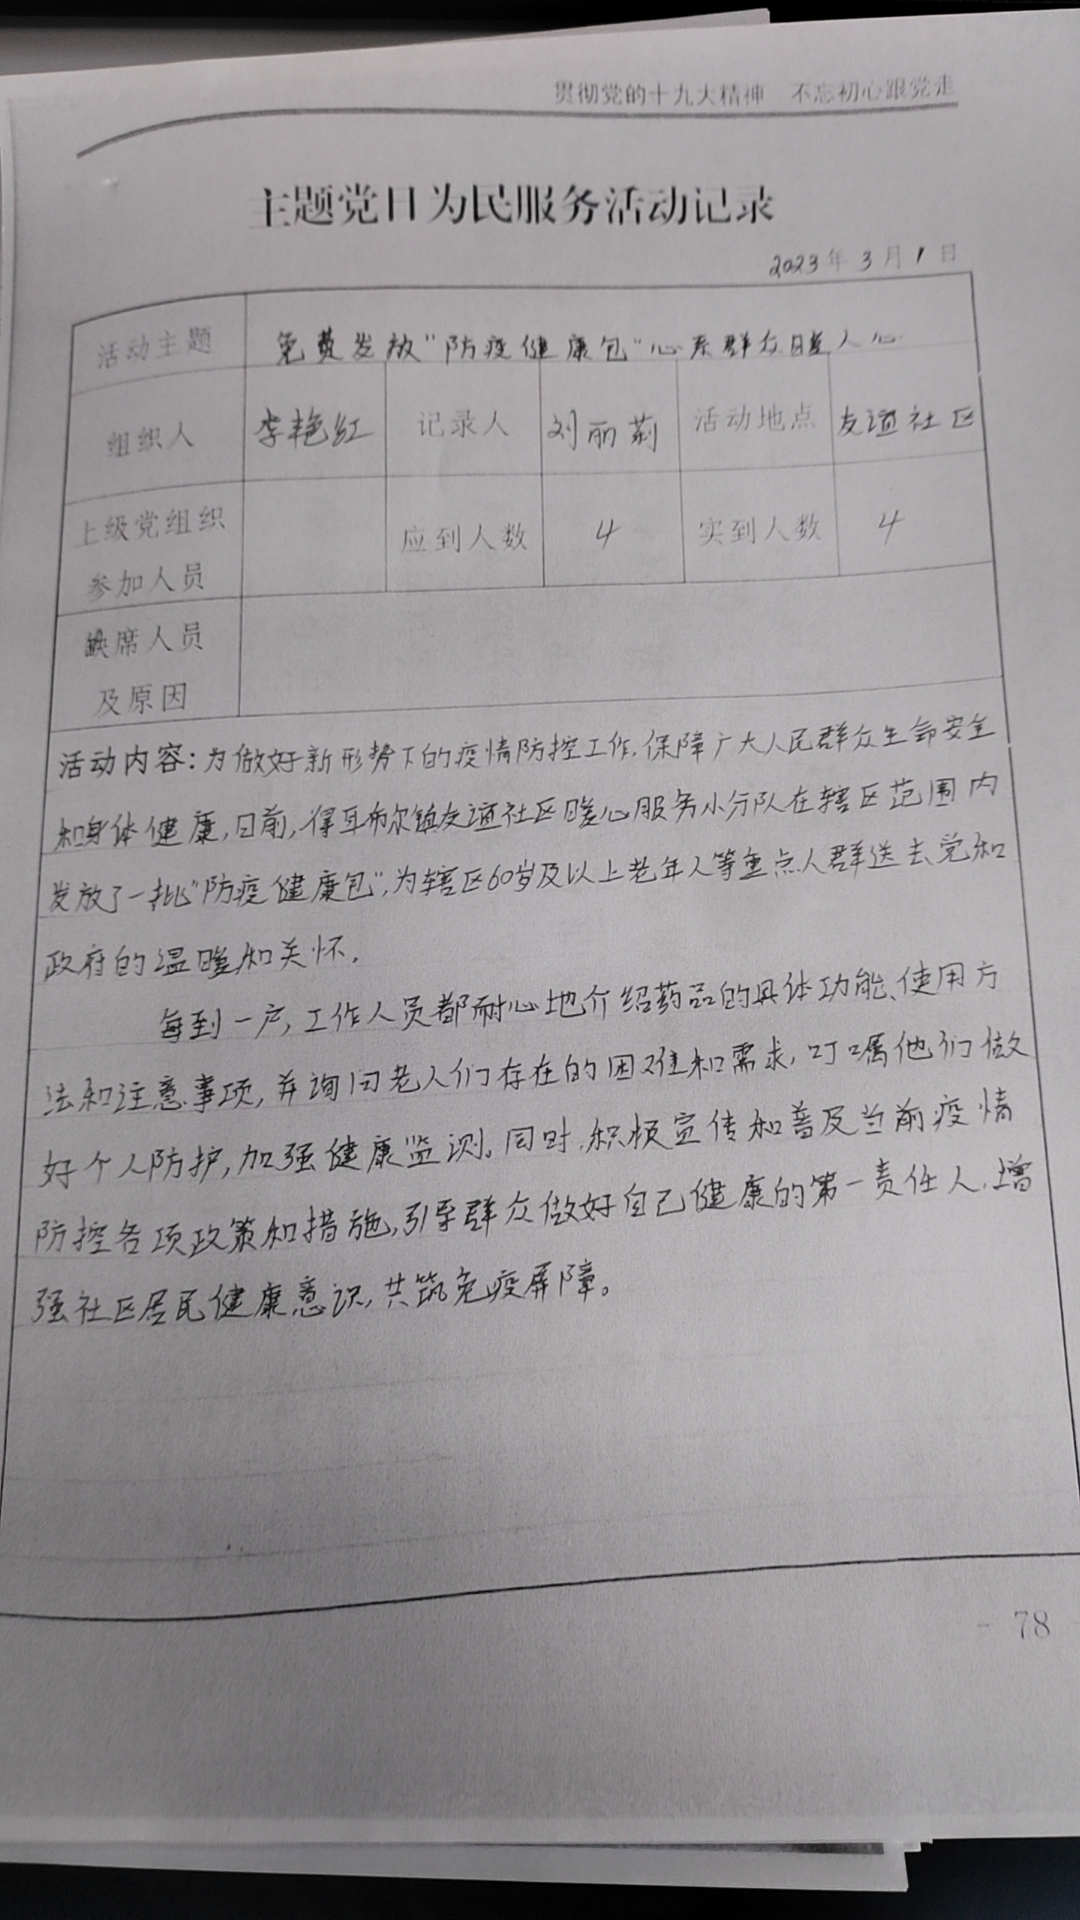 贯彻党的十九大精神 不忘初心跟党走
主题党日为民服务活动记录
2023年3月1日
活动主题 免费发放“防疫健康包”心系群众暖人心
组织人 李艳红 记录人 刘丽莉 活动地点 友谊社区
上级党组织参加人员 应到人数 4 实到人数 4
缺席人员及原因
活动内容:为做好新形势下的疫情防控工作,保障广大人民群众生命安全
和身体健康,日前,得耳布尔镇友谊社区暖心服务小分队在辖区范围内
发放了一批“防疫健康包”,为辖区60岁及以上老年人等重点人群送去党和
政府的温暖和关怀。
每到一户,工作人员都耐心地介绍药品的具体功能、使用方
法和注意事项,并询问老人们存在的困难和需求,叮嘱他们做
好个人防护,加强健康监测。同时,积极宣传和普及当前疫情
防控各项政策和措施,引导群众做好自己健康的第一责任人,增
强社区居民健康意识,共筑免疫屏障。
- 78